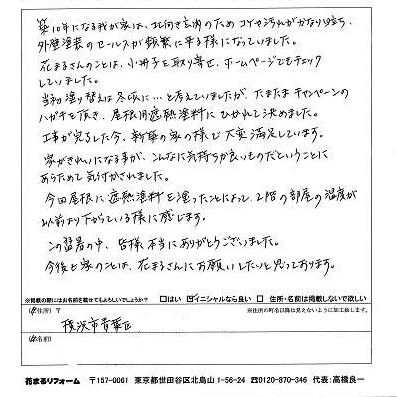 築10年になる我が家は、北向き玄関のためコケや汚れがかなり目立ち、
外壁塗装のセールスが頻繁に来る様になっていました。
花まるさんのことは、小冊子を取り寄せ、ホームページでもチェック
していました。
当初塗り替えは冬頃に…と考えていましたが、たまたまキャンペーンの
ハガキを頂き、屋根用遮熱塗料にひかれて決めました。
工事が完了した今、新築の家の様で大変満足しています。
家がきれいになる事が、こんなに気持ちが良いものだということに
あらためて気付かされました。
今回屋根に遮熱塗料を塗ったことによって、2階の部屋の温度が
以前より下がっている様に感じます。
この猛暑の中、皆様本当にありがとうございました。
今後も家のことは、花まるさんにお願いしたいと思っております。
※掲載の際にはお名前を載せてもよろしいでしょうか? □はい ☑イニシャルなら良い □ 住所・名前は掲載しないで欲しい
(ご住所) 〒 ※住所の町名以降は見えないように加工致します。
横浜市青葉区
(お名前)
花まるリフォーム 〒157-0061 東京都世田谷区北烏山1-56-24 ☎0120-870-346 代表:高橋良一